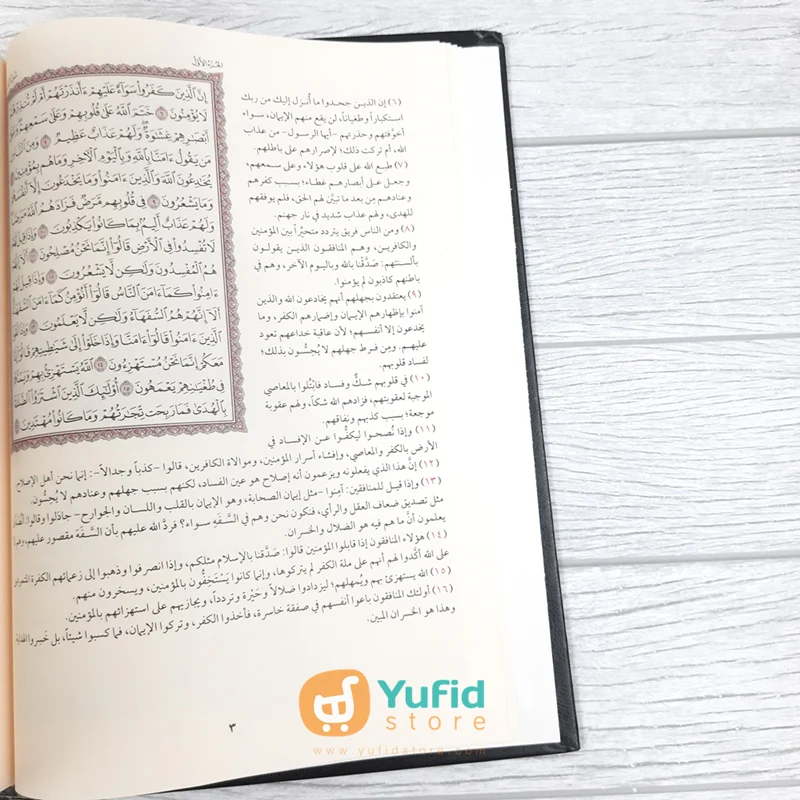 الجزء الأول
إِنَّ ٱلَّذِينَ كَفَرُوا۟ سَوَآءٌ عَلَيْهِمْ ءَأَنذَرْتَهُمْ أَمْ لَمْ تُنذِرْهُمْ
لَا يُؤْمِنُونَ ٦ خَتَمَ ٱللَّهُ عَلَىٰ قُلُوبِهِمْ وَعَلَىٰ سَمْعِهِمْ وَعَلَىٰ
أَبْصَٰرِهِمْ غِشَٰوَةٌ وَلَهُمْ عَذَابٌ عَظِيمٌ ٧ وَمِنَ ٱلنَّاسِ
مَن يَقُولُ ءَامَنَّا بِٱللَّهِ وَبِٱلْيَوْمِ ٱلْءَاخِرِ وَمَا هُم بِمُؤْمِنِينَ
يُخَٰدِعُونَ ٱللَّهَ وَٱلَّذِينَ ءَامَنُوا۟ وَمَا يَخْدَعُونَ إِلَّآ أَنفُسَهُمْ
وَمَا يَشْعُرُونَ ٩ فِى قُلُوبِهِم مَّرَضٌ فَزَادَهُمُ ٱللَّهُ مَرَضًا
وَلَهُمْ عَذَابٌ أَلِيمٌۢ بِمَا كَانُوا۟ يَكْذِبُونَ ١٠ وَإِذَا قِيلَ
لَا تُفْسِدُوا۟ فِى ٱلْأَرْضِ قَالُوٓا۟ إِنَّمَا نَحْنُ مُصْلِحُونَ ١١ أَلَآ
هُمُ ٱلْمُفْسِدُونَ وَلَٰكِن لَّا يَشْعُرُونَ ١٢ وَإِذَا قِيلَ
ءَامِنُوا۟ كَمَآ ءَامَنَ ٱلنَّاسُ قَالُوٓا۟ أَنُؤْمِنُ كَمَآ ءَامَنَ ٱلسُّفَهَآءُ
أَلَآ إِنَّهُمْ هُمُ ٱلسُّفَهَآءُ وَلَٰكِن لَّا يَعْلَمُونَ ١٣ وَإِذَا
ٱلَّذِينَ ءَامَنُوا۟ قَالُوٓا۟ ءَامَنَّا وَإِذَا خَلَوْا۟ إِلَىٰ شَيَٰطِينِهِمْ قَالُوٓا۟
مَعَكُمْ إِنَّمَا نَحْنُ مُسْتَهْزِءُونَ ١٤ ٱللَّهُ يَسْتَهْزِئُ بِهِمْ
فِى طُغْيَٰنِهِمْ يَعْمَهُونَ ١٥ أُو۟لَٰٓئِكَ ٱلَّذِينَ ٱشْتَرَوُا۟
بِٱلْهُدَىٰ فَمَا رَبِحَت تِّجَٰرَتُهُمْ وَمَا كَانُوا۟ مُهْتَدِينَ
(٦) إن الذين جحدوا ما أُنزل إليك من ربك
استكباراً وطغياناً، لن يقع منهم الإيمان، سواء
أخوَّفتهم وحذرتهم -أيها الرسول- من عذاب
الله، أم تركت ذلك؛ لإصرارهم على باطلهم.
(٧) طبع الله على قلوب هؤلاء وعلى سمعهم،
وجعل على أبصارهم غطاء؛ بسبب كفرهم
وعنادهم مِن بعد ما تبيَّن لهم الحق، فلم يوفقهم
للهدى، ولهم عذاب شديد في نار جهنم.
(٨) ومن الناس فريق يتردد متحيّراً بين المؤمنين
والكافرين، وهم المنافقون الذين يقولون
بألسنتهم: صدَّقْنا بالله وباليوم الآخر، وهم في
باطنهم كاذبون لم يؤمنوا.
(٩) يعتقدون بجهلهم أنهم يخادعون الله والذين
آمنوا بإظهارهم الإيمان وإضمارهم الكفر، وما
يخدعون إلا أنفسهم؛ لأن عاقبة خداعهم تعود
عليهم. ومن فرط جهلهم لا يُحِسُّون بذلك؛
لفساد قلوبهم.
(١٠) في قلوبهم شكٌّ وفساد فابْتُلوا بالمعاصي
الموجبة لعقوبتهم، فزادهم الله شكاً، ولهم عقوبة
موجعة؛ بسبب كذبهم ونفاقهم.
(١١) وإذا نُصحوا ليكفُّوا عن الإفساد في
الأرض بالكفر والمعاصي، وإفشاء أسرار المؤمنين، وموالاة الكافرين، قالوا -كذباً وجدالاً-: إنما نحن أهل الإصلاح
(١٢) إنَّ هذا الذي يفعلونه ويزعمون أنه إصلاح هو عين الفساد، لكنهم بسبب جهلهم وعنادهم لا يُحِسُّون.
(١٣) وإذا قيل للمنافقين: آمِنوا -مثل إيمان الصحابة، وهو الإيمان بالقلب واللسان والجوارح- جادَلوا وقالوا:
مثل تصديق ضعاف العقل والرأي، فنكون نحن وهم في السَّفَهِ سواء؟ فردَّ الله عليهم بأن السَّفَهَ مقصور عليهم، وهم
يعلمون أنَّ ما هم فيه هو الضلال والخسران.
(١٤) هؤلاء المنافقون إذا قابلوا المؤمنين قالوا: صَدَّقنا بالإسلام مثلكم، وإذا انصرفوا وذهبوا إلى زعمائهم الكفرة
على الله أكَّدوا لهم أنهم على ملة الكفر لم يتركوها، وإنما كانوا يَسْتَخِفُّون بالمؤمنين، ويسخرون منهم.
(١٥) الله يستهزئ بهم ويُمهلهم؛ ليزدادوا ضلالاً وحَيْرة وتردداً، ويجازيهم على استهزائهم بالمؤمنين.
(١٦) أولئك المنافقون باعوا أنفسهم في صفقة خاسرة، فأخذوا الكفر، وتركوا الإيمان، فما كسبوا شيئاً، بل خَسِروا الهداية
وهذا هو الخسران المبين.
٣
Yufid
store
www.yufidstore.com